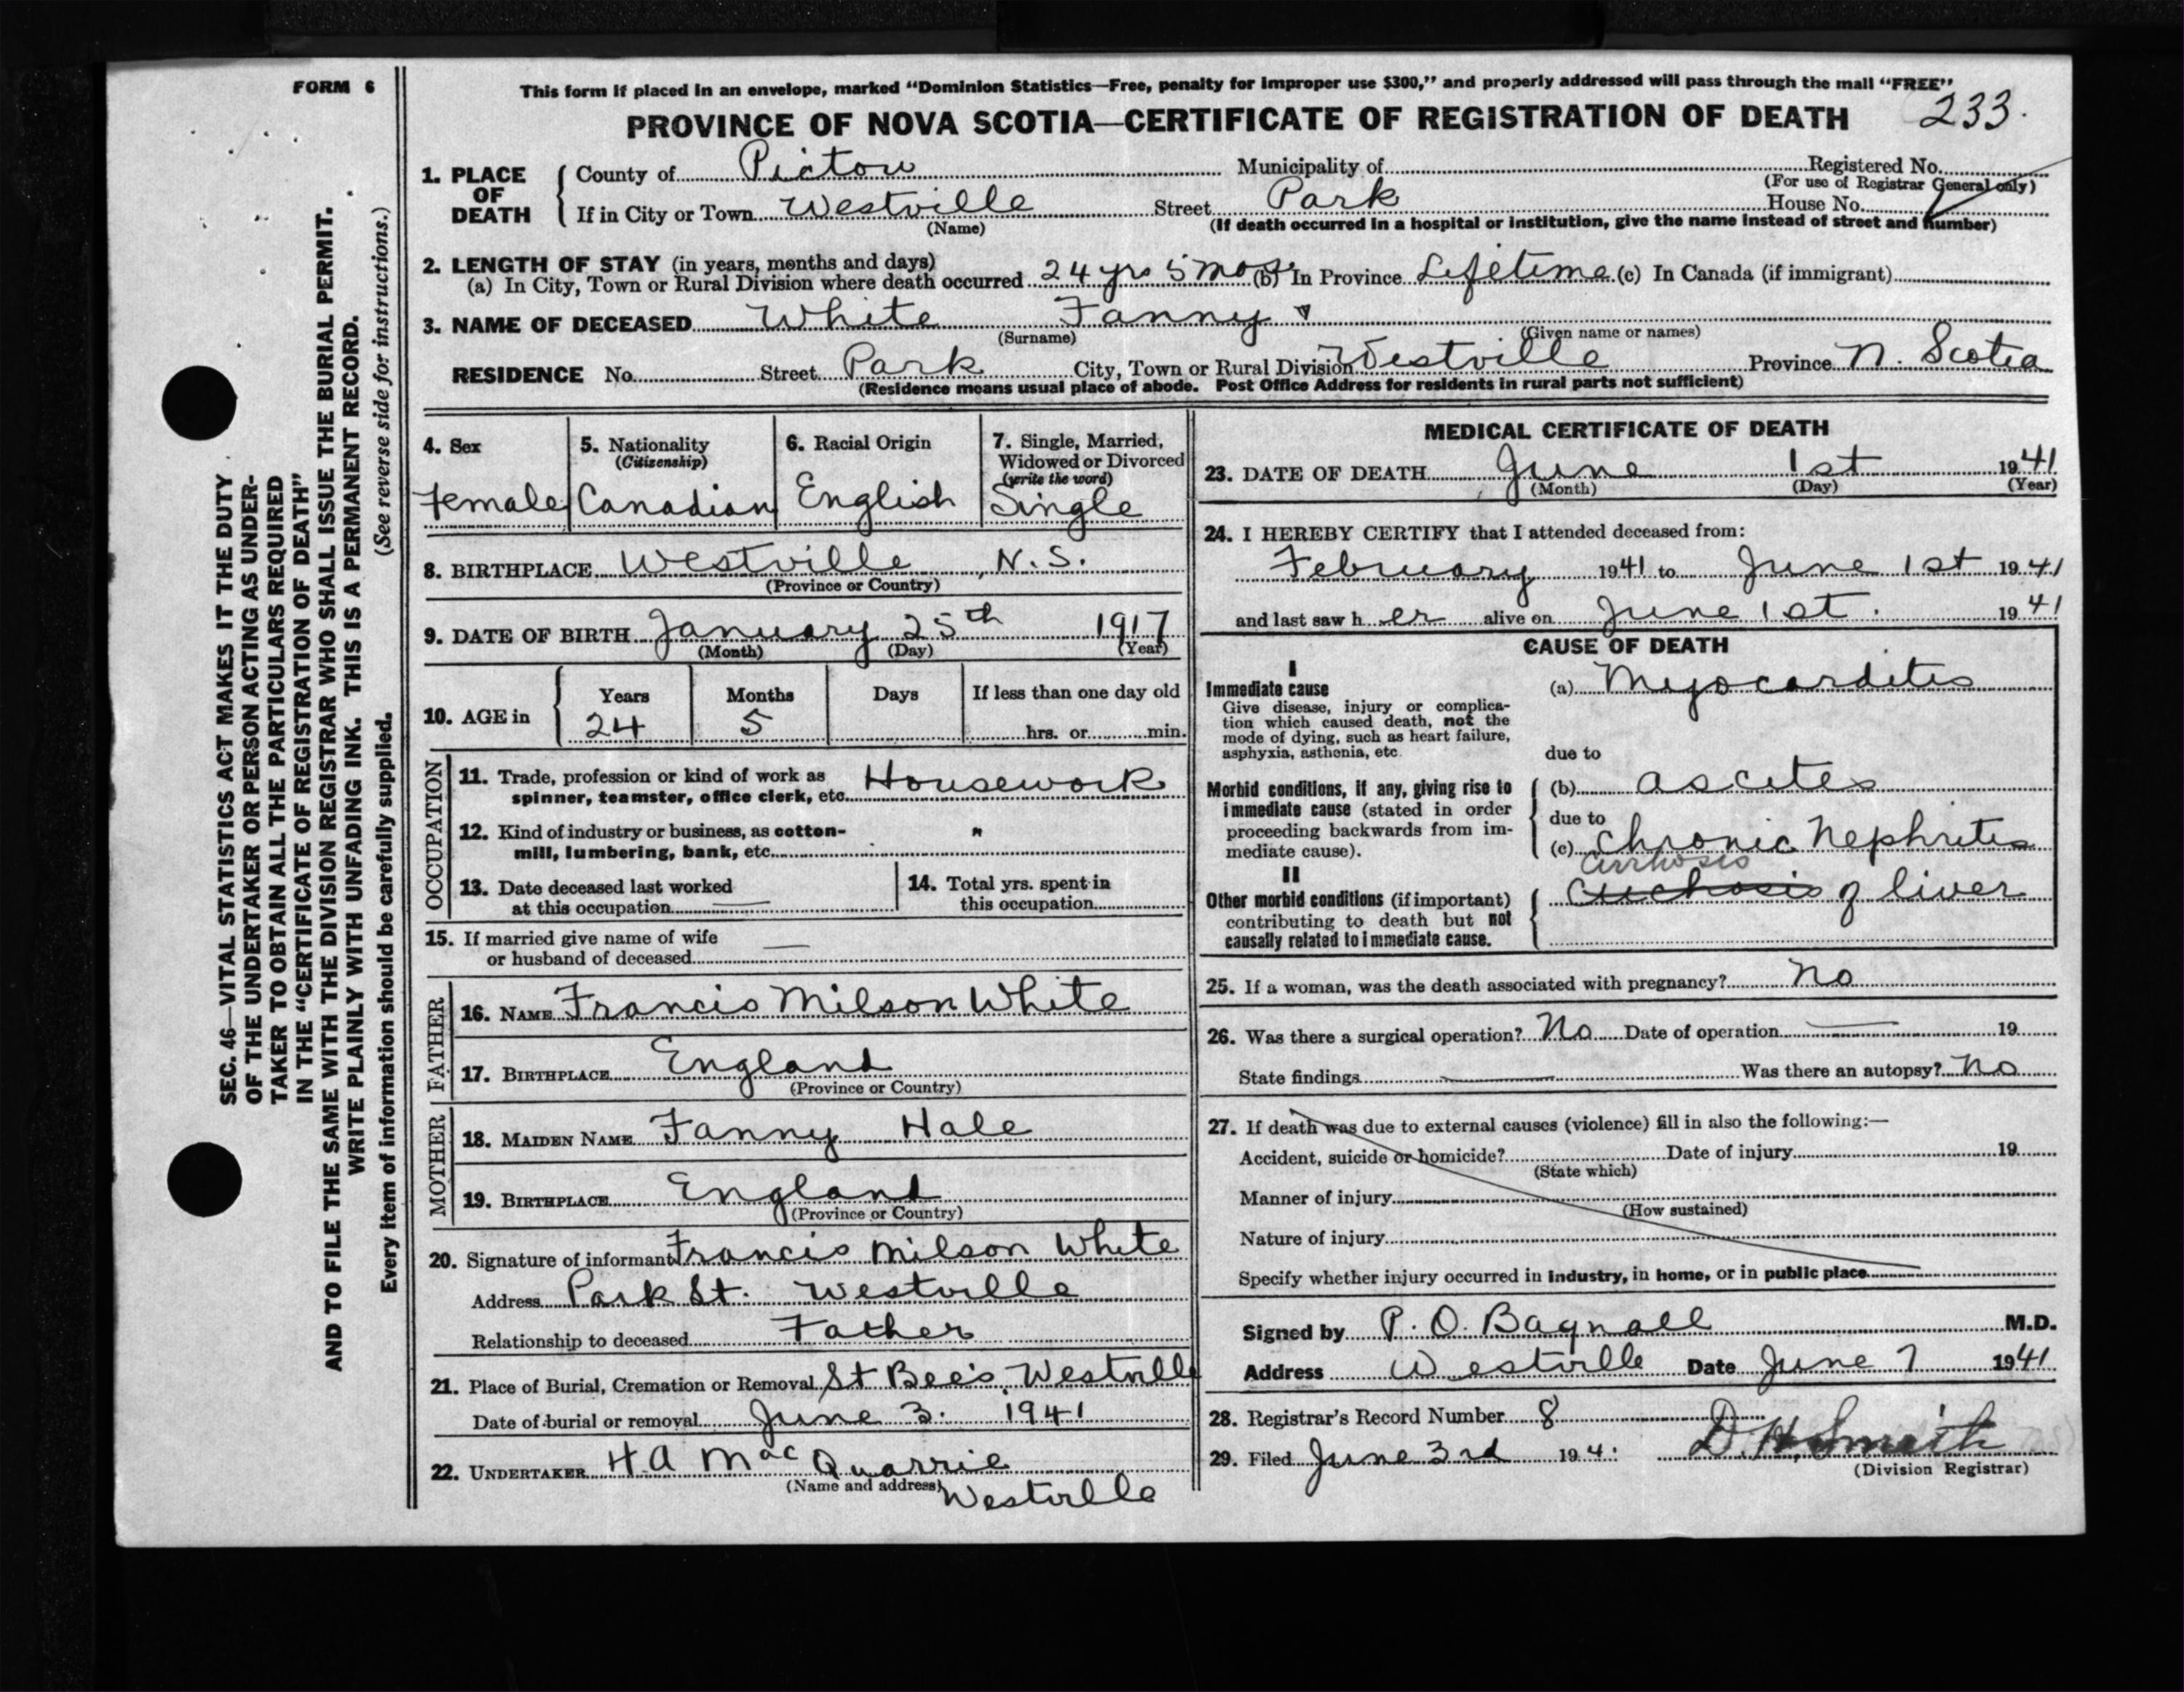 FORM 6
This form if placed in an envelope, marked "Dominion Statistics—Free, penalty for improper use $300," and properly addressed will pass through the mail "FREE"
PROVINCE OF NOVA SCOTIA—CERTIFICATE OF REGISTRATION OF DEATH 233.
1. PLACE OF DEATH
County of Pictou Municipality of Registered No.
(For use of Registrar General only)
If in City or Town Westville Street Park House No.
(Name) (If death occurred in a hospital or institution, give the name instead of street and number)
2. LENGTH OF STAY (in years, months and days)
(a) In City, Town or Rural Division where death occurred 24 yrs 5 mos (b) In Province Lifetime (c) In Canada (if immigrant)
3. NAME OF DECEASED White Fanny
(Surname) (Given name or names)
RESIDENCE No. Street Park City, Town or Rural Division Westville Province N. Scotia
(Residence means usual place of abode. Post Office Address for residents in rural parts not sufficient)
4. Sex
Female
5. Nationality
(Citizenship)
Canadian
6. Racial Origin
English
7. Single, Married,
Widowed or Divorced
(write the word)
Single
8. BIRTHPLACE Westville, N.S.
(Province or Country)
9. DATE OF BIRTH January 25th 1917
(Month) (Day) (Year)
10. AGE in
Years Months Days If less than one day old
24 5 hrs. or min.
OCCUPATION
11. Trade, profession or kind of work as
spinner, teamster, office clerk, etc. Housework
12. Kind of industry or business, as cotton-
mill, lumbering, bank, etc. "
13. Date deceased last worked
at this occupation —
14. Total yrs. spent in
this occupation
15. If married give name of wife
or husband of deceased —
FATHER
16. NAME Francis Milson White
17. BIRTHPLACE England
(Province or Country)
MOTHER
18. MAIDEN NAME Fanny Hale
19. BIRTHPLACE England
(Province or Country)
20. Signature of informant Francis Milson White
Address Park St. Westville
Relationship to deceased Father
21. Place of Burial, Cremation or Removal St Bee's, Westville
Date of burial or removal June 3. 1941
22. UNDERTAKER H.A MacQuarrie
(Name and address) Westville
MEDICAL CERTIFICATE OF DEATH
23. DATE OF DEATH June 1st 1941
(Month) (Day) (Year)
24. I HEREBY CERTIFY that I attended deceased from:
February 1941 to June 1st 1941
and last saw her alive on June 1st. 1941
CAUSE OF DEATH
I
Immediate cause
Give disease, injury or complica-
tion which caused death, not the
mode of dying, such as heart failure,
asphyxia, asthenia, etc.
(a) Myocarditis
due to
Morbid conditions, if any, giving rise to
immediate cause (stated in order
proceeding backwards from im-
mediate cause).
(b) ascites
due to
(c) Chronic Nephritis
II
Other morbid conditions (if important)
contributing to death but not
causally related to immediate cause.
Cirrhosis
of liver
25. If a woman, was the death associated with pregnancy? No
26. Was there a surgical operation? No Date of operation — 19
State findings — Was there an autopsy? No
27. If death was due to external causes (violence) fill in also the following:—
Accident, suicide or homicide? Date of injury 19
(State which)
Manner of injury
(How sustained)
Nature of injury
Specify whether injury occurred in industry, in home, or in public place
Signed by P. O. Bagnall M.D.
Address Westville Date June 7 1941
28. Registrar's Record Number 8
29. Filed June 3rd 194 D. H. Smith
(Division Registrar)
SEC. 46—VITAL STATISTICS ACT MAKES IT THE DUTY
OF THE UNDERTAKER OR PERSON ACTING AS UNDER-
TAKER TO OBTAIN ALL THE PARTICULARS REQUIRED
IN THE "CERTIFICATE OF REGISTRATION OF DEATH"
AND TO FILE THE SAME WITH THE DIVISION REGISTRAR WHO SHALL ISSUE THE BURIAL PERMIT.
WRITE PLAINLY WITH UNFADING INK. THIS IS A PERMANENT RECORD.
Every item of information should be carefully supplied. (See reverse side for instructions.)